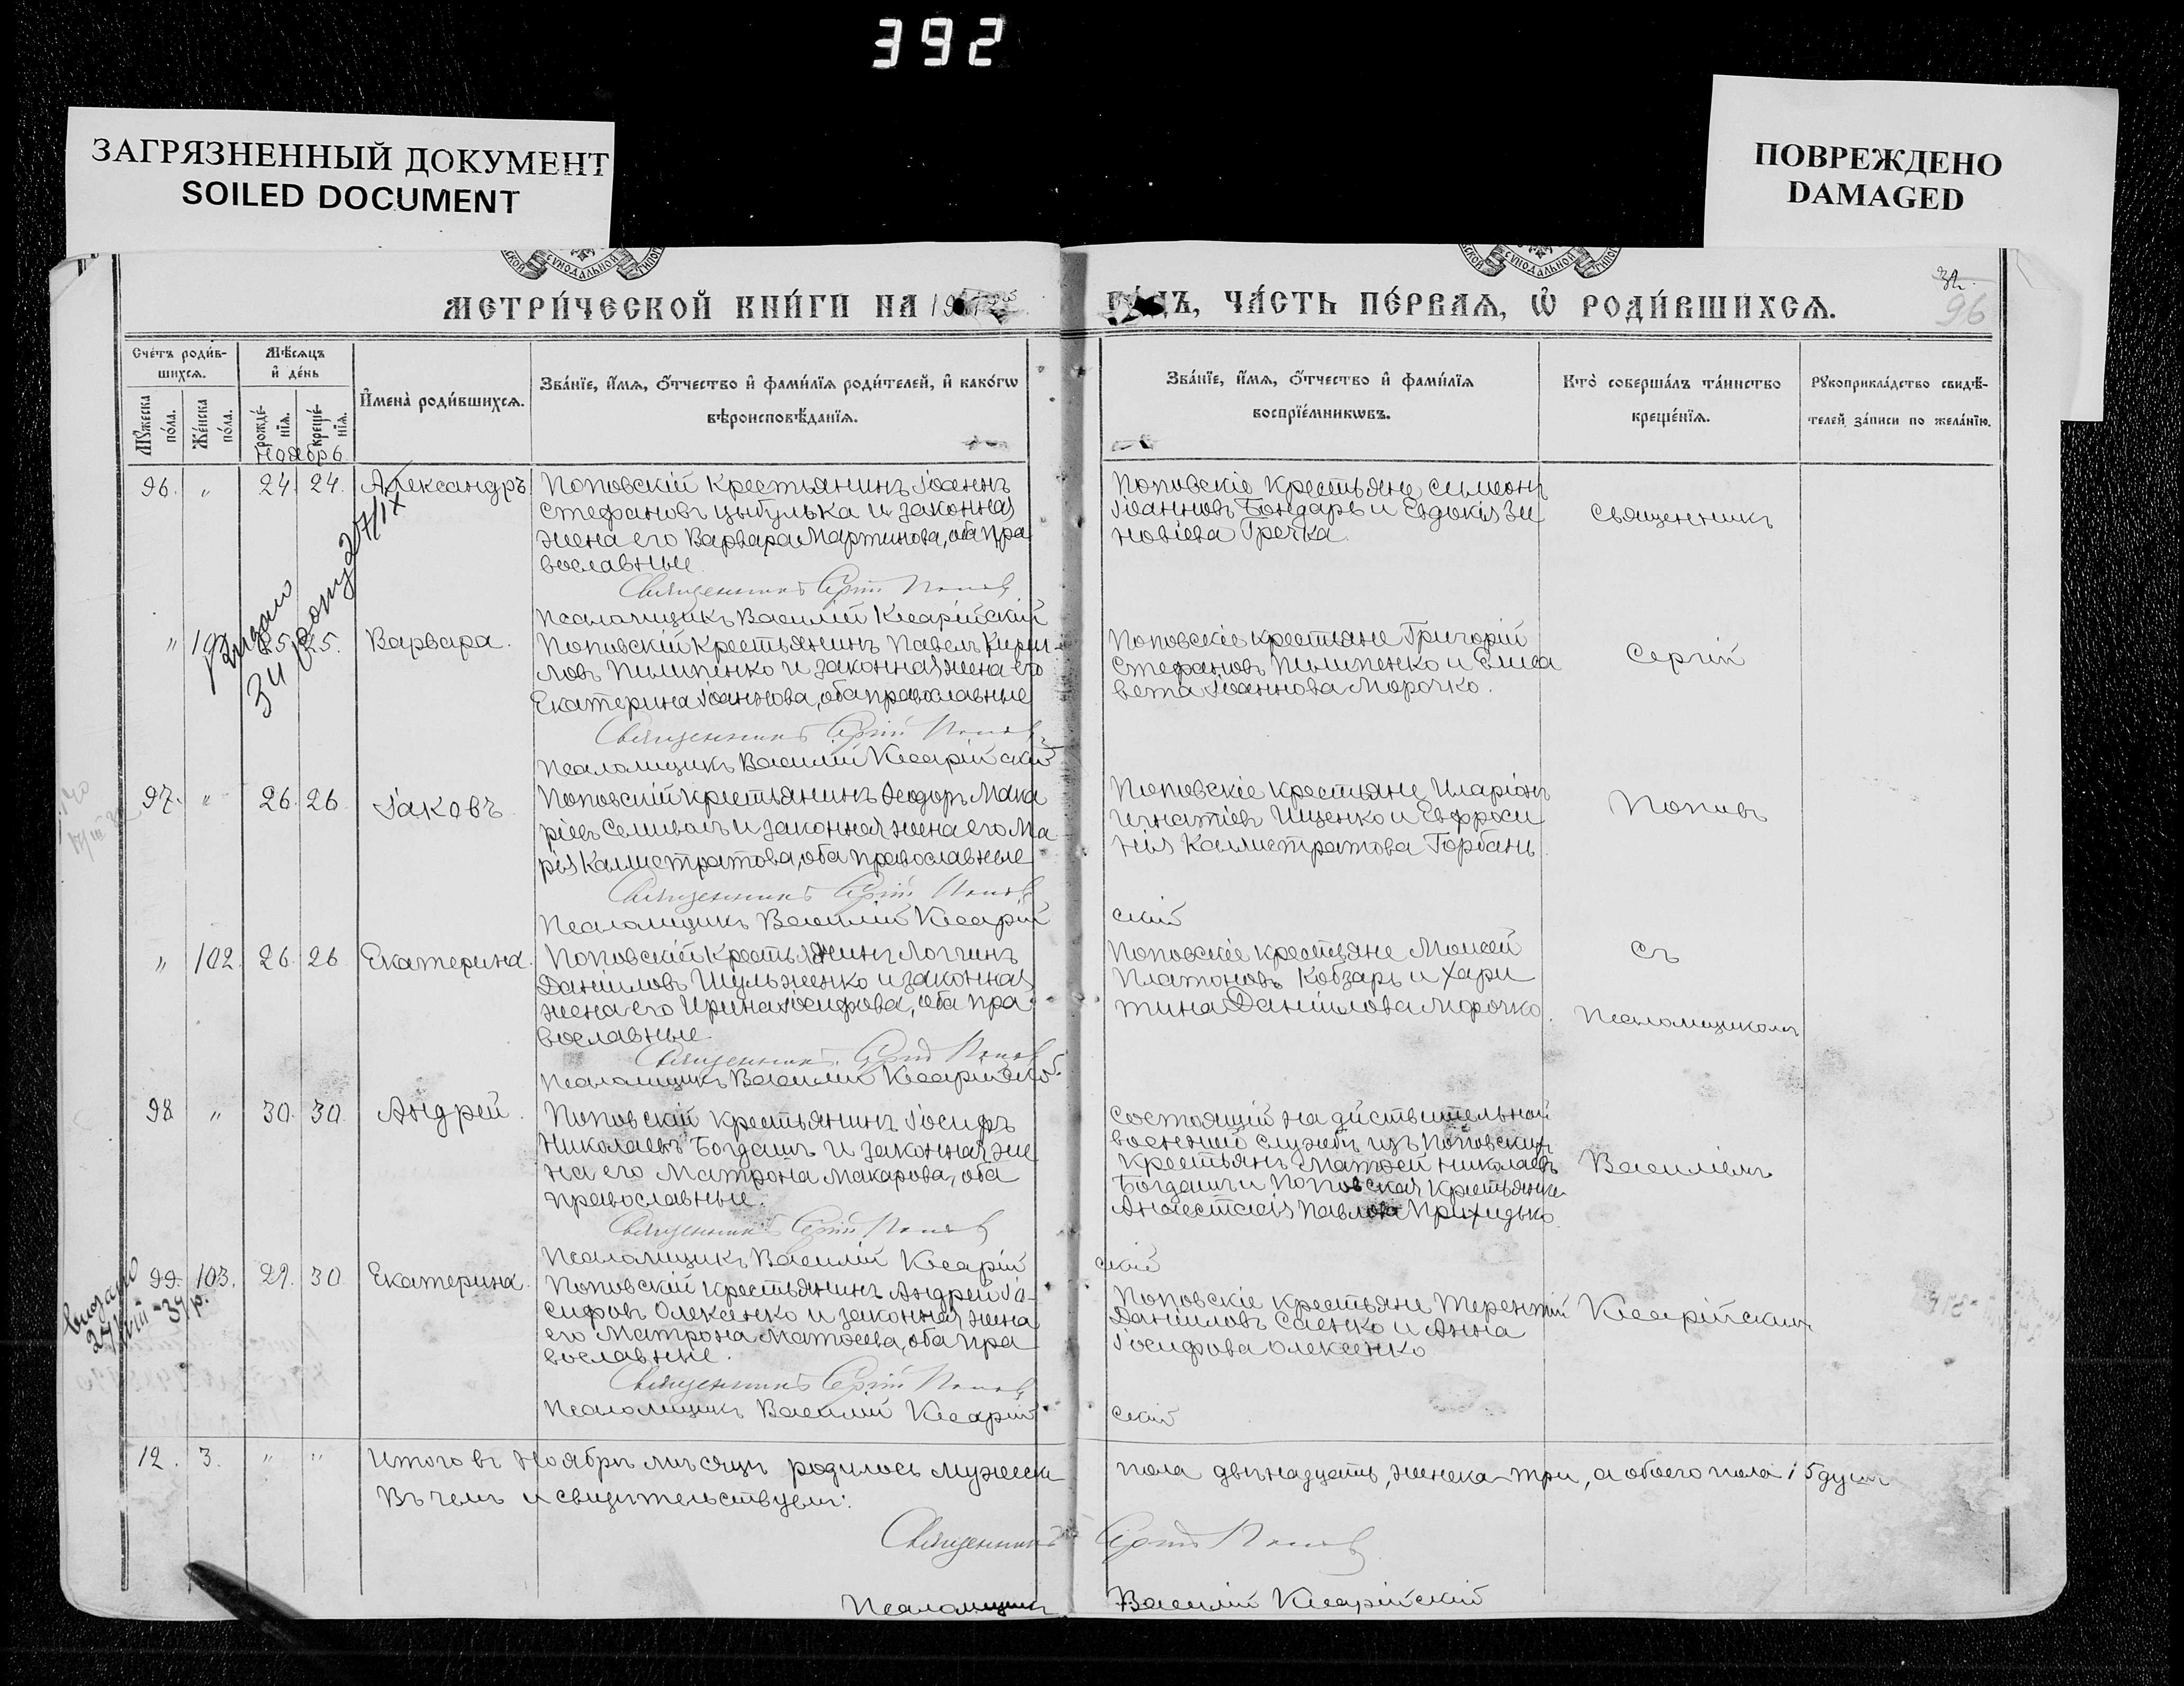 392
ЗАГРЯЗНЕННЫЙ ДОКУМЕНТ
SOILED DOCUMENT
ПОВРЕЖДЕНО
DAMAGED
МЕТРИ́ЧЕСКОЙ КНИ́ГИ НА 19
ЧА́СТЬ ПЕ́РВАЯ, Ѡ҆ РОДИ́ВШИХСЯ.
32.
96
Сче́тъ роди́в-
шихся.
Мѣ́сяцъ
и҆ де́нь
Му́жеска
по́ла.
Же́нска
по́ла.
рожде́-
нїя.
креще́-
нїя.
Ноябрь
И҆мена̀ роди́вшихся.
Зва́нїе, и҆́мя, ѻ҆́тчество и҆ фами́лїя роди́телей, и҆ како́гѡ
вѣроисповѣ́данїя.
Зва́нїе, и҆́мя, ѻ҆́тчество и҆ фами́лїя
воспрїе́мникѡвъ.
Кто̀ соверша́лъ та́инство
креще́нїя.
Рꙋкоприкла́дство свидѣ́-
телей за́писи по жела́нїю.
96. " 24. 24. Александръ
Поповскій крестьянинъ Іоаннъ
Стефановъ Цыбулька и законная
жена его Варвара Мартинова, оба пра
вославные.
Священникъ Сергій Поповъ
Псаломщикъ Василій Кесарійскій
Поповскіе крестьяне Симеонъ
Іоанновъ Бондарь и Евдокія Зи
новіева Гречка.
Священникъ
Видано
" 25. 25. Варвара.
Поповскій крестьянинъ Павелъ Кирил-
ловъ Пилипенко и законная жена его
Екатерина Іоаннова, оба православные
Священникъ Сергій Поповъ
Псаломщикъ Василій Кесарійскій
Поповскіе крестьяне Григорій
Стефановъ Пилипенко и Елиса
вета Іоаннова Морочко.
Сергій
97. " 26. 26 Іаковъ
Поповскій крестьянинъ Ѳеодоръ Мака
ріевъ Селиванъ и законная жена его Ма
рія Каллистратова, оба православные
Священникъ Сергій Поповъ
Псаломщикъ Василій Кесарій
Поповскіе крестьяне Иларіонъ
Игнатіевъ Ищенко и Евфроси
нія Каллистратова Горбань.
скій
Поповъ
" 102. 26. 26 Екатерина.
Поповскій крестьянинъ Логгинъ
Даніиловъ Шульженко и законная
жена его Ирина Іосифова, оба пра
вославные.
Священникъ Сергій Поповъ
Псаломщикъ Василій
Поповскіе крестьяне Моисей
Платоновъ Кобзарь и Хари
тина Даніилова Морочко.
съ
Псаломщикомъ
98 " 30. 30. Андрей.
Поповскій крестьянинъ Іосифъ
Николаевъ Богдашъ и законная же
на его Матрона Макарова, оба
православные.
Священникъ Сергій Поповъ
Псаломщикъ Василій Кесарій
Состоящій на дѣйствительной
военной службѣ изъ Поповскихъ
крестьянъ Матѳей Николаевъ
Богдашъ и Поповская крестьянка
Анастасія Павлова Приходько
скій
Василіемъ
видано
27/VIII-37 р.
99. 103. 29. 30 Екатерина.
Поповскій крестьянинъ Андрей Іо-
сифовъ Олексенко и законная жена
его Матрона Матѳеева, оба пра
вославные.
Священникъ Сергій Поповъ
Псаломщикъ Василій Кесарій
Поповскіе крестьяне Терентій
Даніиловъ Саенко и Анна
Іосифова Олексенко
скій
Кесарійскимъ
12. 3. " " Итого въ Ноябрѣ мѣсяцѣ родилось мужеска пола двѣнадцать, женска-три, а обоего пола 15 душъ
Въ чемъ и свидѣтельствуемъ:
Священникъ Сергій Поповъ
Псаломщикъ Василій Кесарійскій